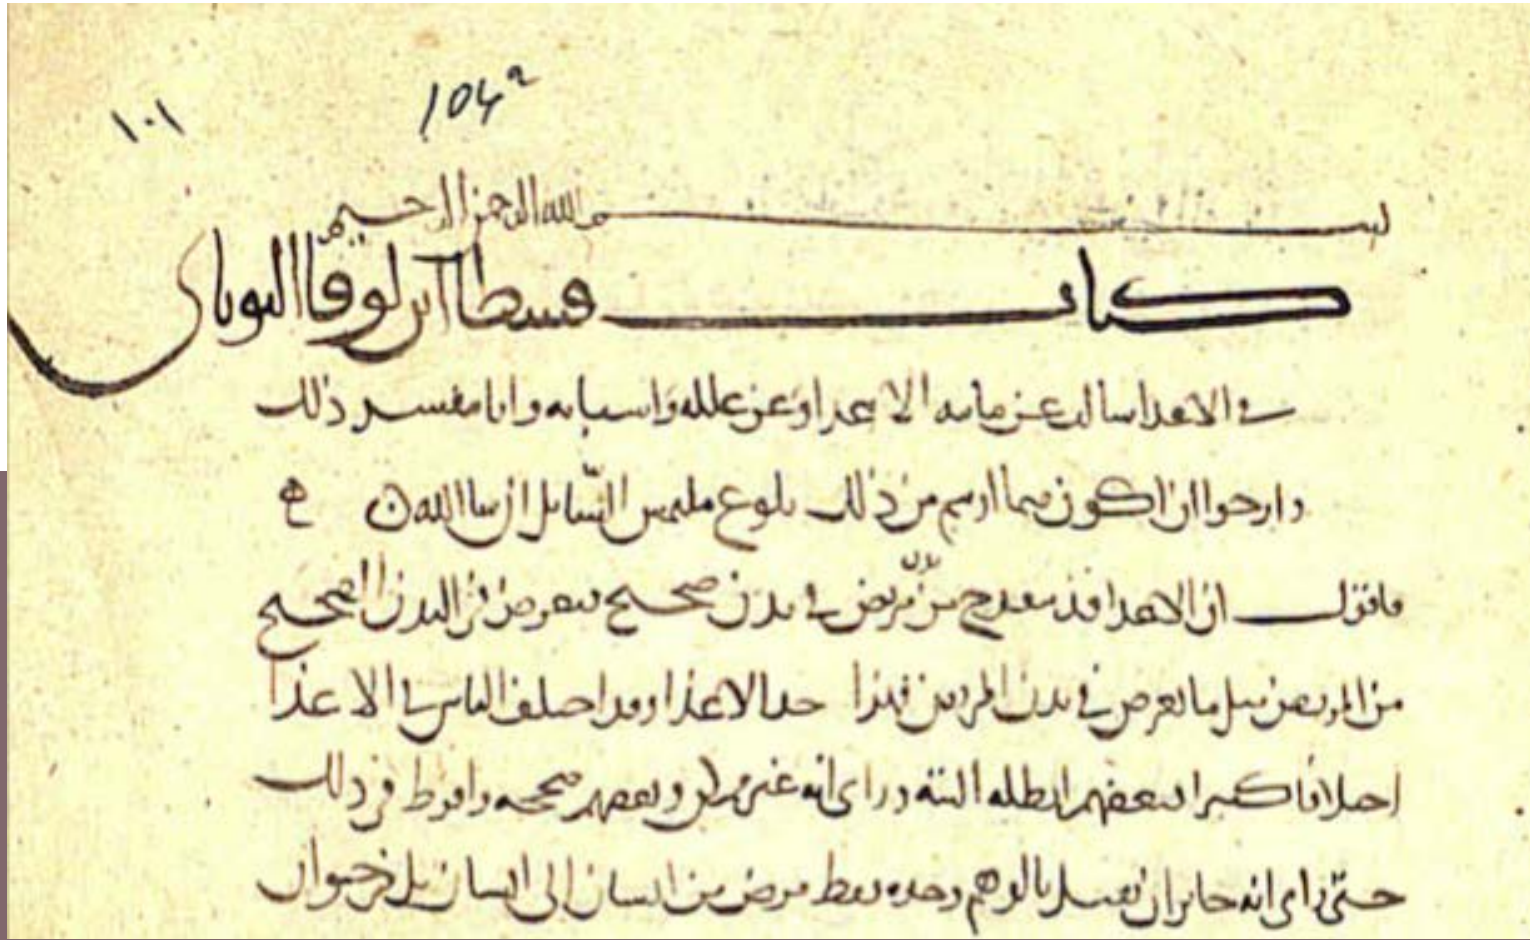 ١٠١ 104²
بسم الله الرحمن الرحيم
كتاب قسطا ابن لوقا اليوناني
في الاعدا سالت عن مايه الاعدا وعن علله واسبابه وانا مفسر ذلك
وارجوا ان اكون فيما ارسم من ذلك بلوغ ملتمس السايل ان سا الله
فاقول ان الاعدا من مريض في بدن صحيح فيعرض في البدن الصحيح
من المرض مثل ما يعرض في بدن المريض فهذا حد الاعدا وقد اختلف الناس في الاعدا
اختلافا كثيرا فبعضهم ابطله البتة وراى انه غير وبعضهم صححه وافرط في ذلك
حتى راى انه جايز ان بالوهم وحده فقط مرض من انسان الى انسان بل من حيوان